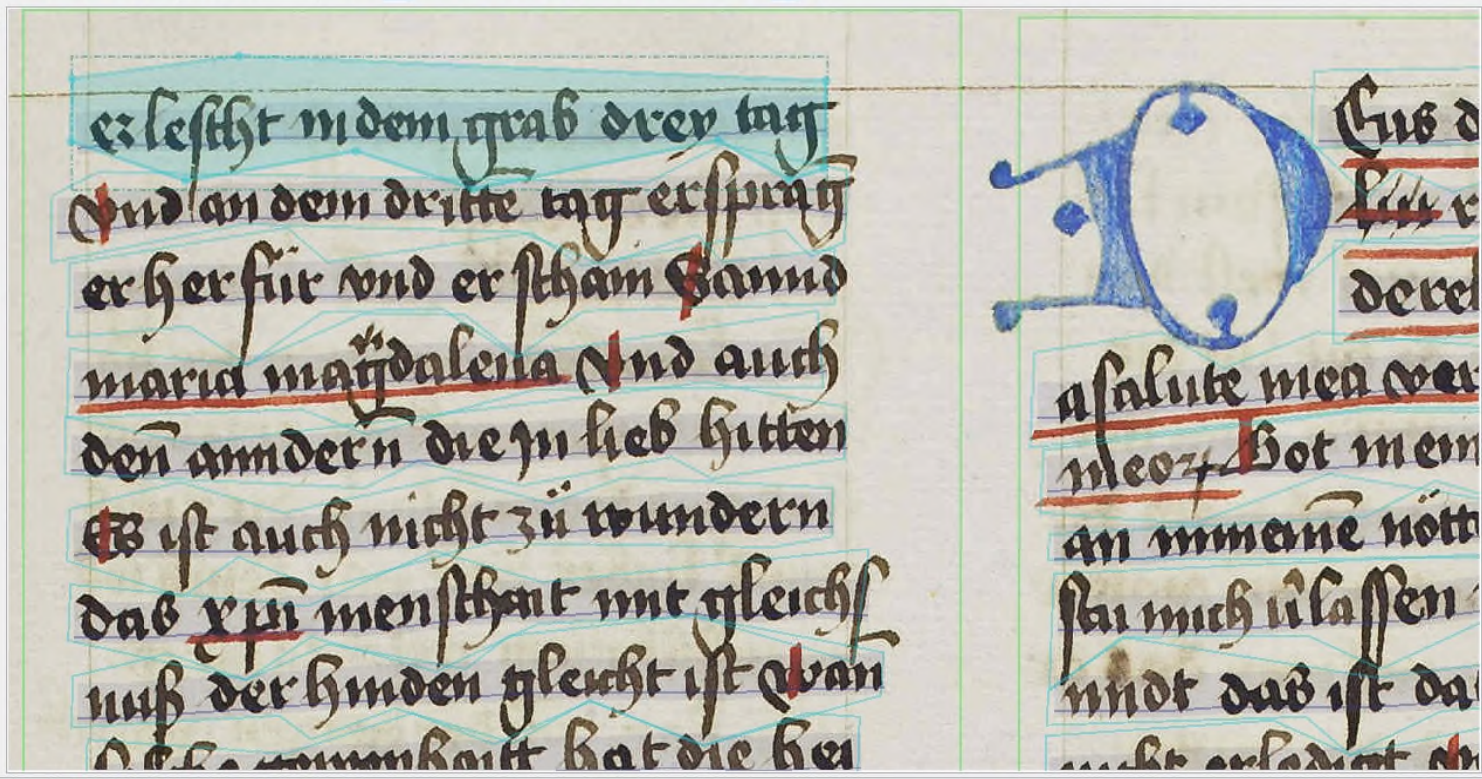 erlescht in dem grab drey tag
Vnd an dem drittē tag ersprāg
er herfür vnd erscham Sannd
maria magdalena Vnd auch
den̄ anndern̄ die jn lieb hitten
Es ist auch nicht zü wundern
das xp̄i menschait mit gleichs
nuß der hinden gleicht ist Wan̄
hat die hei
Eus d
dere
a salute mea ver
meoꝝ Got mein
an meinē nött
stu mich
lassen
nndt das ist da
nicht erledigt